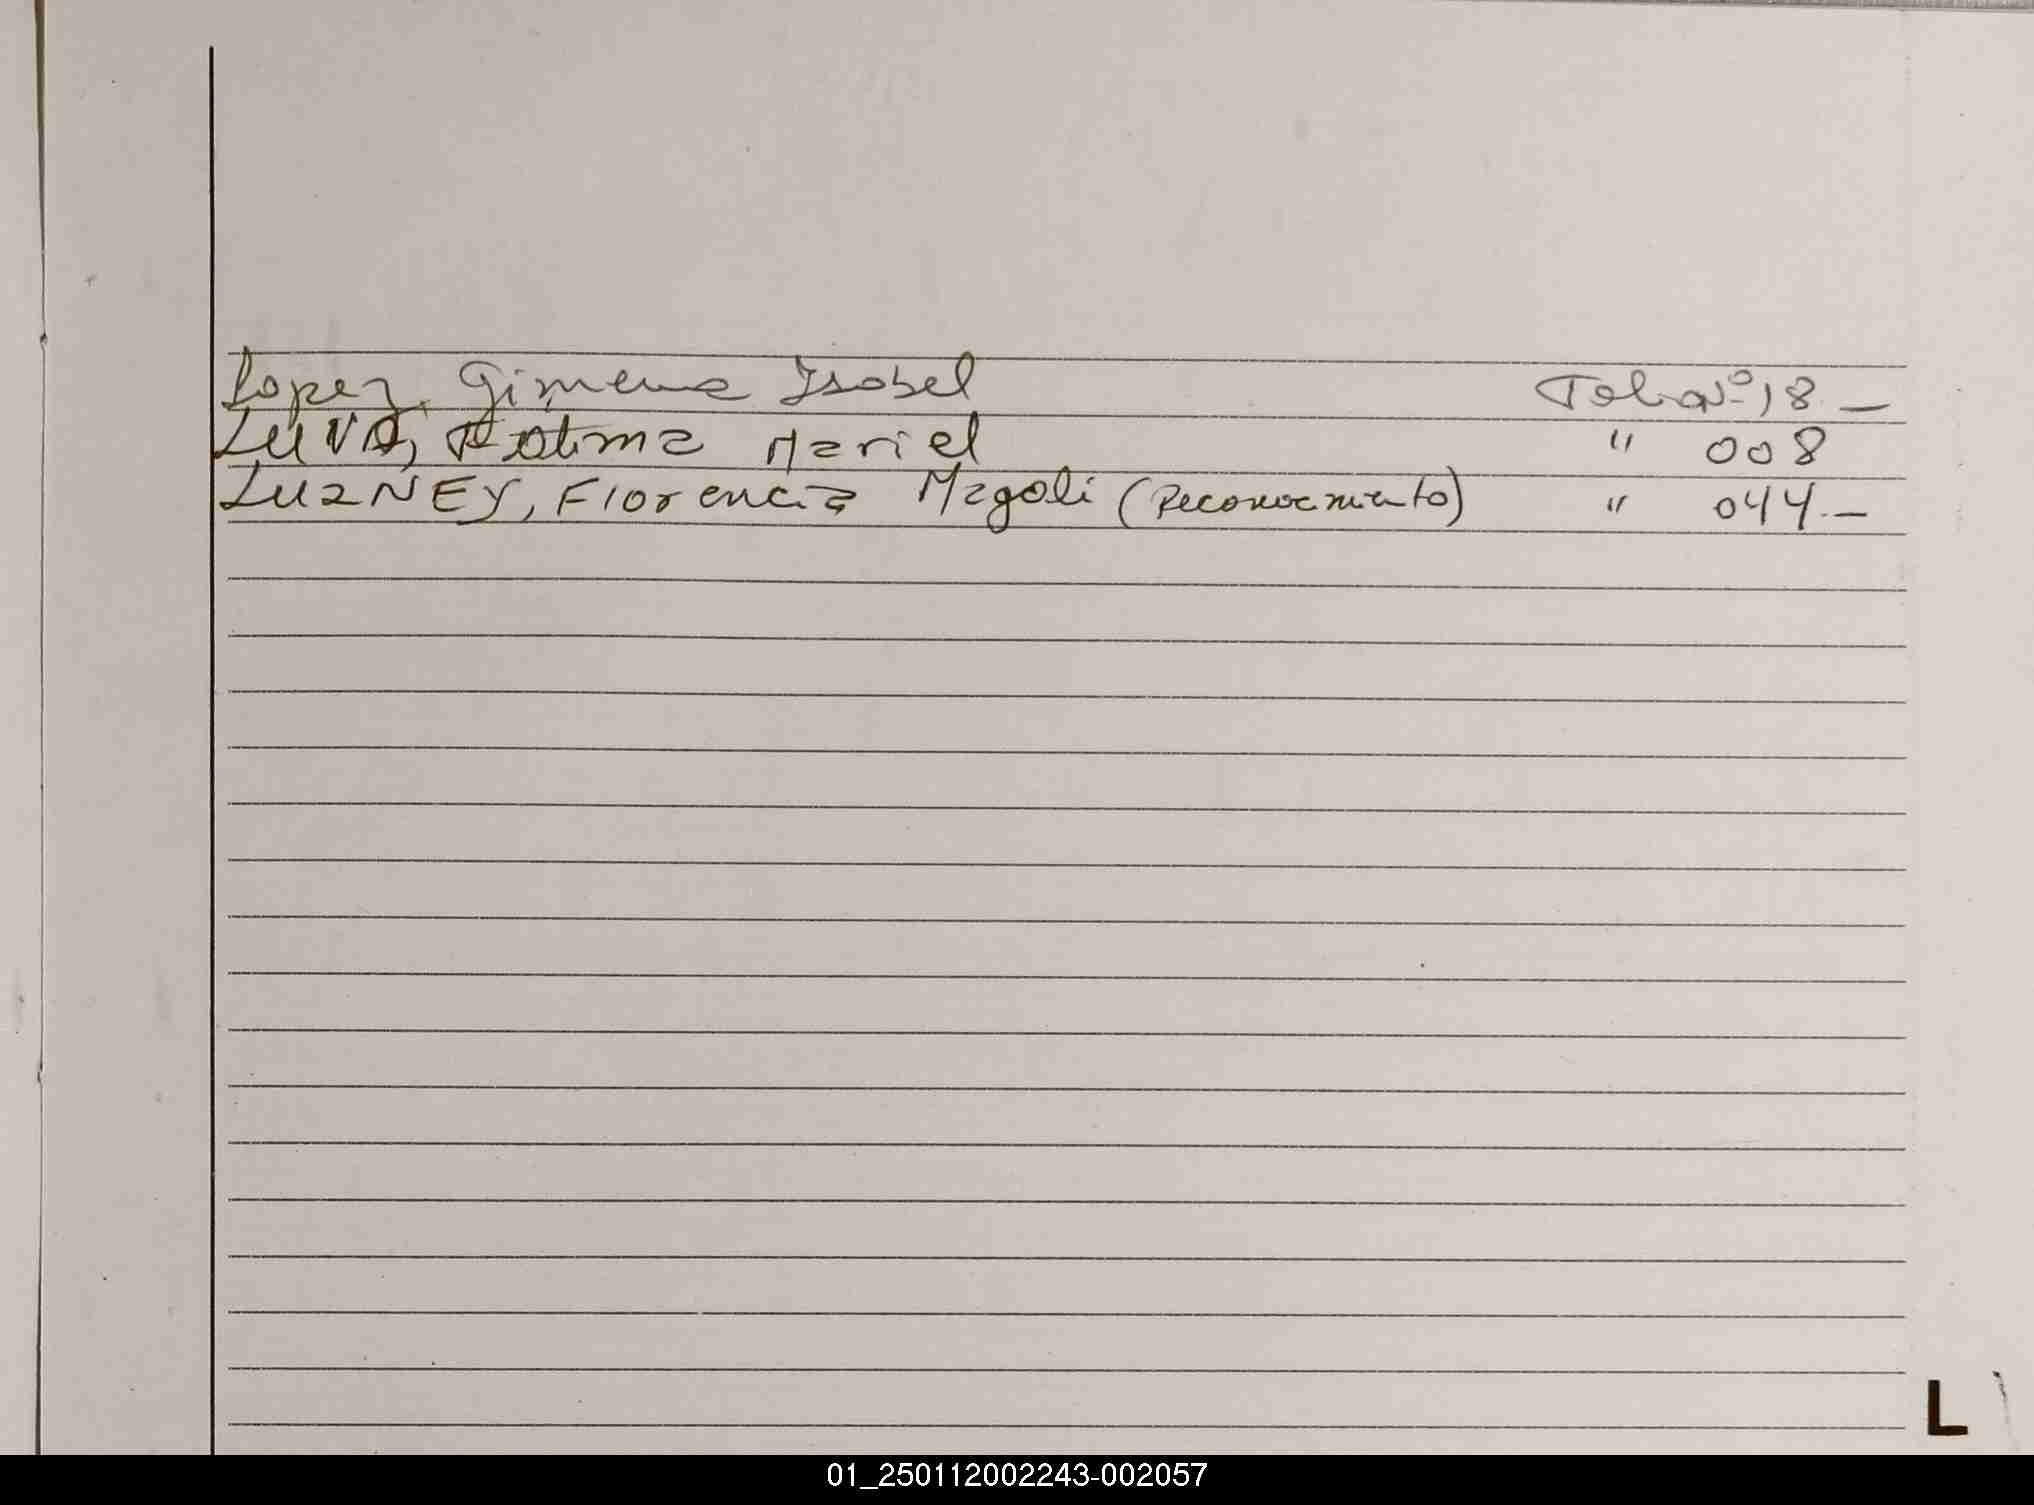 Lopez, Gimena Isabel Folio Nº 18 —
LUNA, Fatima Mariel " 008
LUANEY, Florencia Magali (Reconocimiento) " 044.—
L
01_250112002243-002057